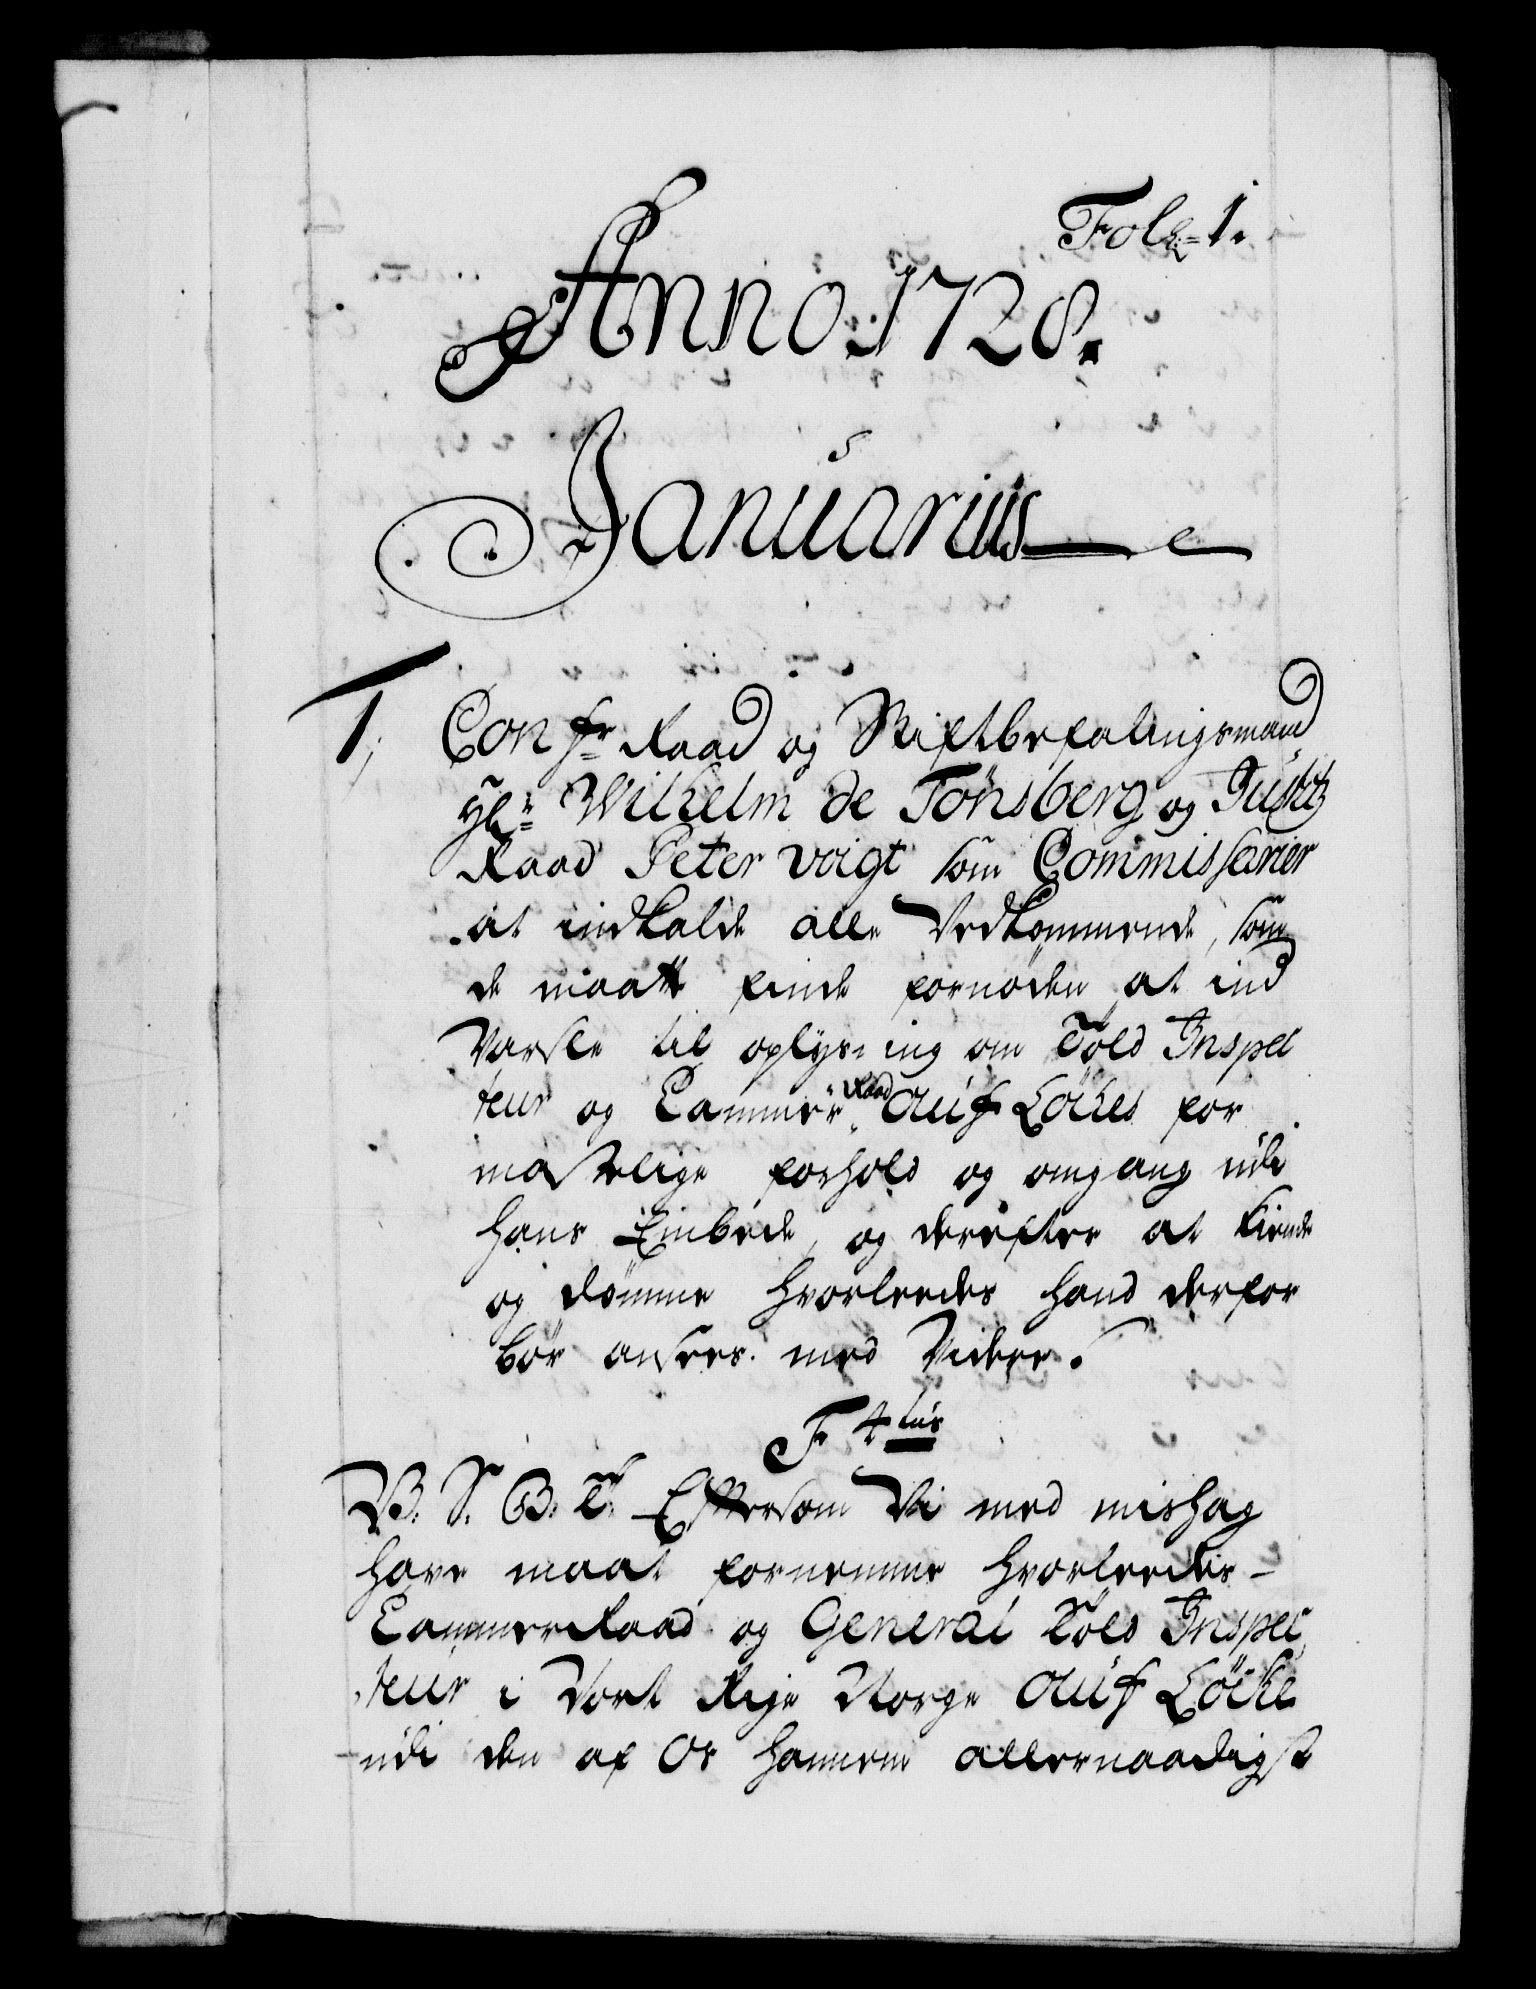 Fol: 1.
Anno 1728.
Januarius
1, Conf: Raad og Stiftbefalingsmand
Wilhelm de Tönsberg og Justitz
Raad Peter Voigt som Commissarier
at indkalde alle Vedkommende, som
de maatte finde fornöden at ind
Varsle til oplysning om Told Inspec
teur og Cammer Raad Ouf Löckes for
meentlige forhold og omgang udi
hans Embede, og derefter at kiende
og dömme hvorleedes hand derfor
bör ansees med Videre.
F. 4tus
V. S. G. V. Eftersom Vi med mishag
have maat fornemme hvorleedes
CammerRaad og General Told Inspec
teur i Vort Rige Norge Ouf Löcke
udi den af Os hannem allernaadigst